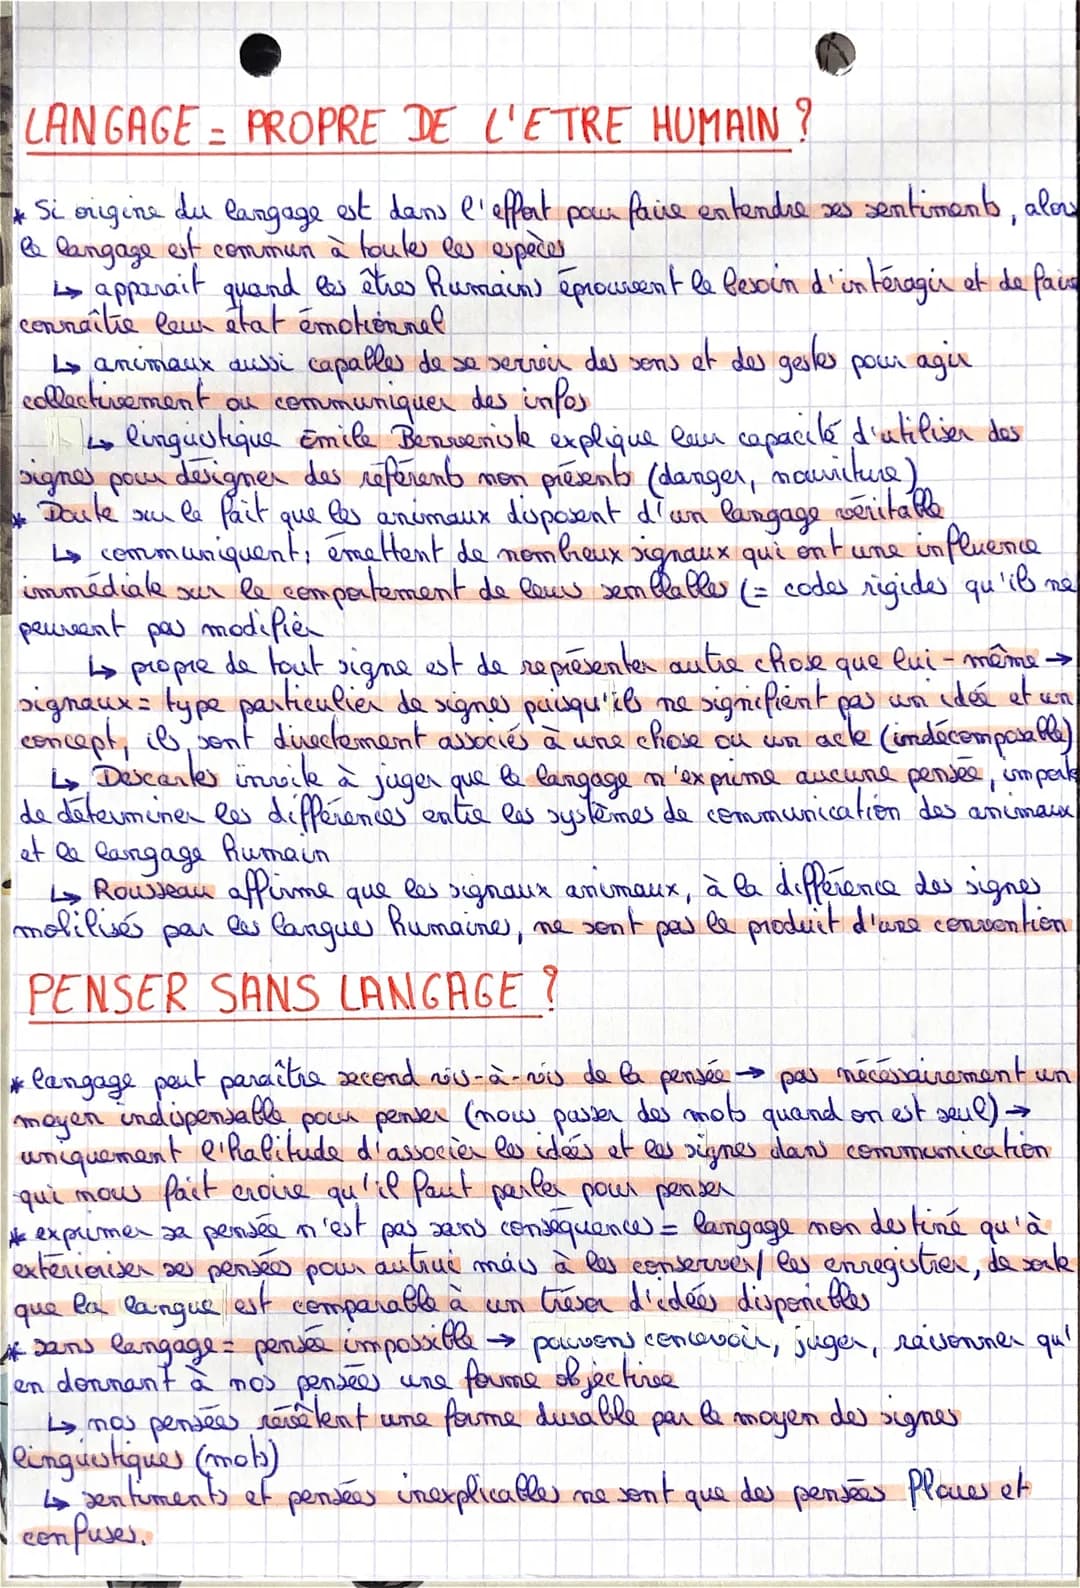 LANGAGE = PROPRE DE L'ETRE HUMAIN ?
* Si origine du langage est dans l'effort pour faire entendre ses sentiments, alors
le langage est commun à toutes les espèces
↳ apparait quand les êtres humains éprouvent le besoin d'intéragir et de faire
connaître leur état émotionnel
↳ animaux aussi capables de se servir des sons et des gestes pour agir
collectivement ou communiquer des infos
↳ linguistique Emile Benveniste explique leur capacité d'utiliser des
signes pour désigner des référents non présents (danger, nourriture)
* Doute sur le fait que les animaux disposent d'un langage véritable
↳ communiquent, émettent de nombreux signaux qui ont une influence
immédiate sur le comportement de leurs semblables (= codes rigides qu'ils ne
peuvent pas modifier
↳ propre de tout signe est de représenter autre chose que lui-même →
signaux = type particulier de signes puisqu'ils ne signifient pas un idée et un
concept, ils sont directement associés à une chose ou un acte (indécomposable)
↳ Descartes invite à juger que le langage n'exprime aucune pensée, importe
de déterminer les différences entre les systèmes de communication des animaux
et le langage humain
↳ Rousseau affirme que les signaux animaux, à la différence des signes
mobilisés par les langues humaines, ne sont pas le produit d'une convention
PENSER SANS LANGAGE ?
* langage peut paraître second vis-à-vis de la pensée → pas nécéssairement un
moyen indispensable pour penser (nous passer des mots quand on est seul) →
uniquement l'habitude d'associer les idées et les signes dans communication
qui nous fait croire qu'il faut parler pour penser
* exprimer sa pensée n'est pas sans conséquences = langage non destiné qu'à
extérioriser ses pensées pour autrui mais à les conserver/ les enregistrer, de sorte
que la langue est comparable à un trésor d'idées disponibles
* sans langage = pensée impossible → pouvons concevoir, juger, raisonner qu'
en donnant à nos pensées une forme objective
↳ nos pensées revêtent une forme durable par le moyen des signes
linguistiques (mots)
↳ sentiments et pensées inexplicables ne sont que des pensées floues et
confuses.